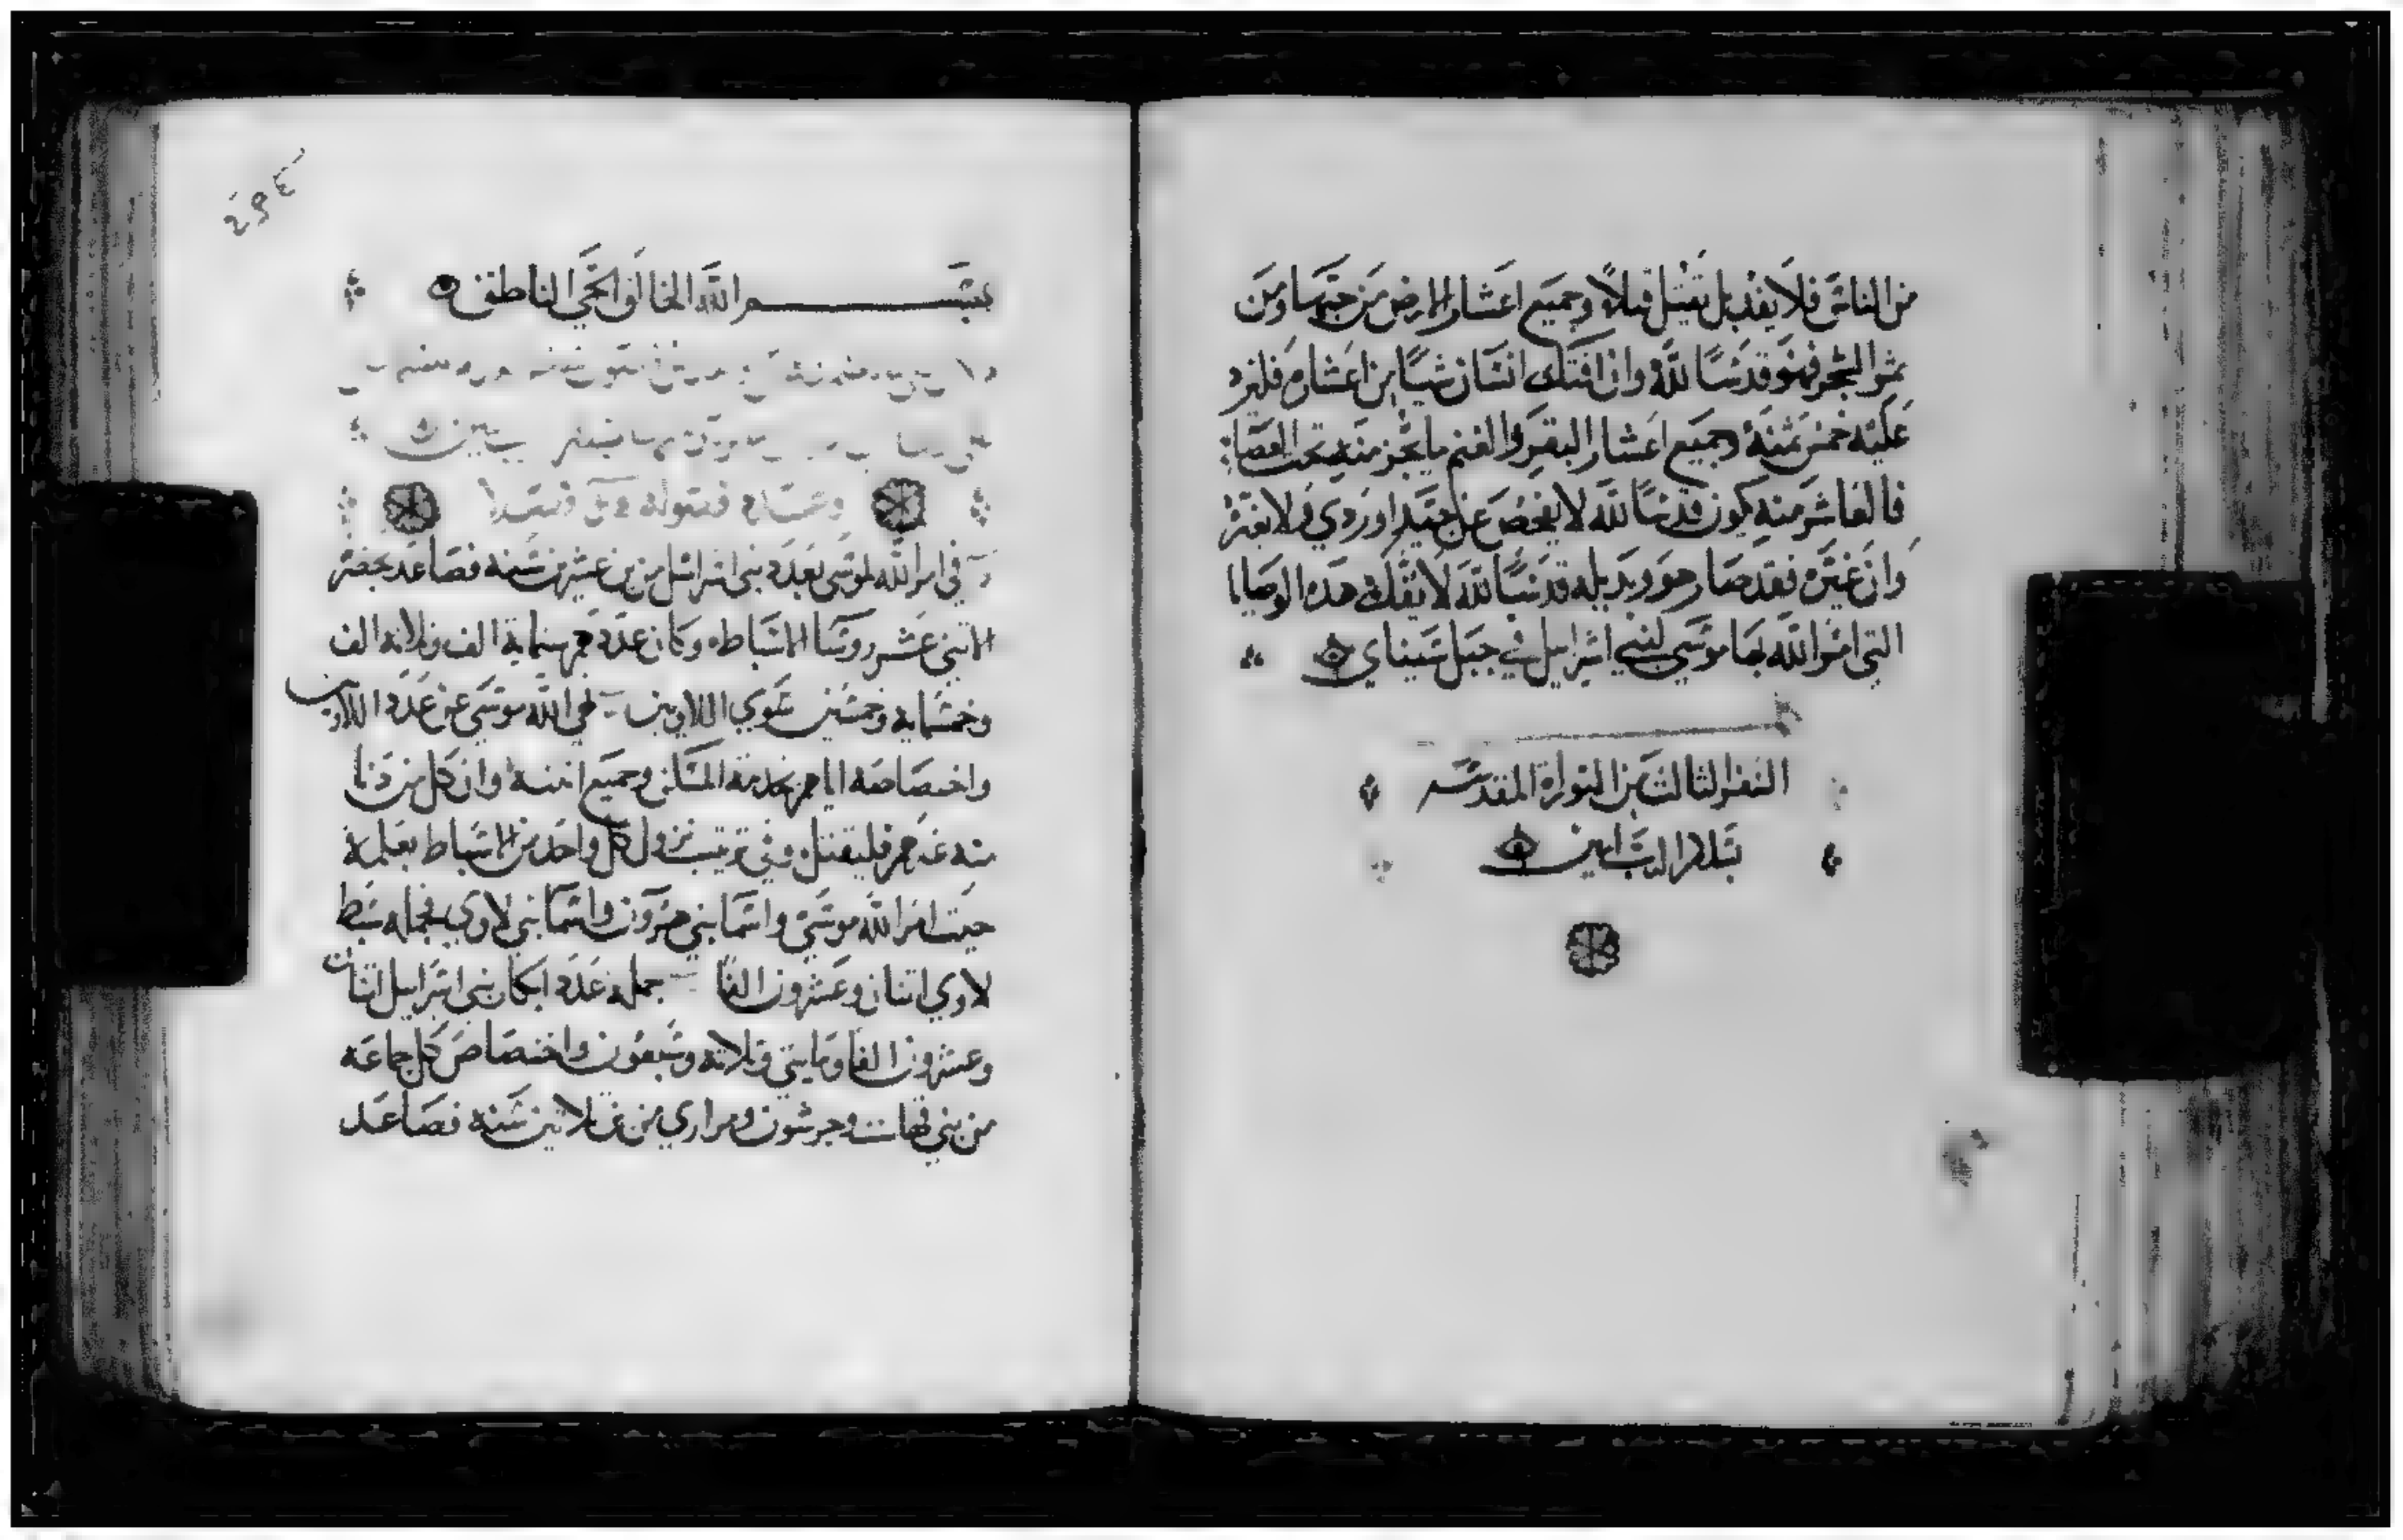 من الناس فلا يفد بل يقتل قتلاً وجميع اعشار الارض من حبها ومن
ثمر الشجر فهو قدسًا لله وان افتك انسان شيًا من اعشاره فليزد
عليه خمس ثمنه وجميع اعشار البقر والغنم ما يجز منه تحت العصا
فالعاشر منه يكون قدسًا لله لا يفحص عن جيد او ردي ولا يغيره
وان غيره فقد صار هو وبديله قدسًا لله لا يفك هذه الوصايا
التي امر الله بها موسي لبني اسراييل في جبل سيناي
السفر الثالث من التوراة المقدسه
بسلام الرب امين
بسم الله الخالق الحي الناطق
وعشارة فصوله
في امر الله لموسى بعدد بني اسرائيل من بن عشرين سنه فصاعد بحضرة
الاثني عشر روسا الاسباط وكان عددهم ستماية الف وثلاثه الف
وخمسماية وخمسين سوي اللاويين نهي الله موسي عن عدد اللاويين
واختصاصه اياهم بخدمة المسكن وجميع امتعته وان كل من دنا
منه غيرهم فليقتل وفي ترتيب نزول كل واحد من الاسباط بعلمه
حيت امر الله موسي واسما بني هرون واسما بني لاوي فجمله سبط
لاوي اثنان وعشرون الفا جمله عدد ابكار بني اسراييل اثنان
وعشرون الفا ومايتي وثلاثه وسبعون واختصاص كل جماعه
من بني قهات وجرشون ومراري من بن ثلاثين سنه فصاعد